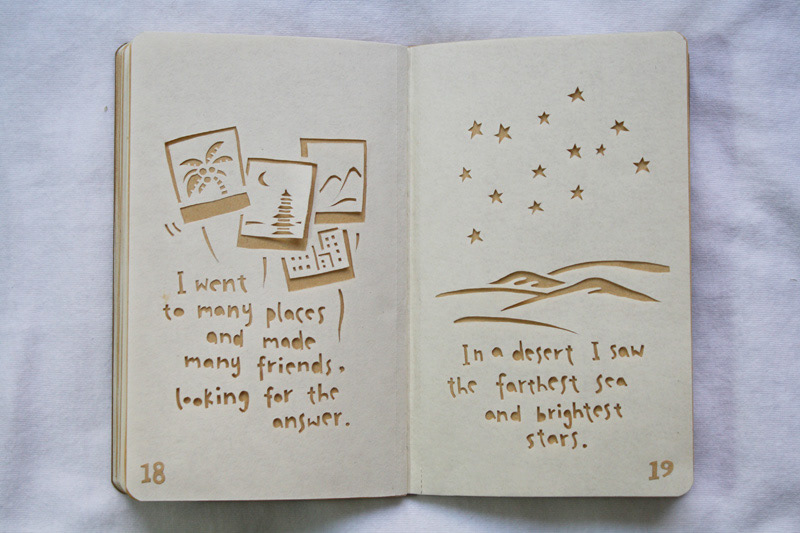 I went
to many places
and made
many friends,
looking for the
answer.
18
In a desert I saw
the farthest sea
and brightest
stars.
19